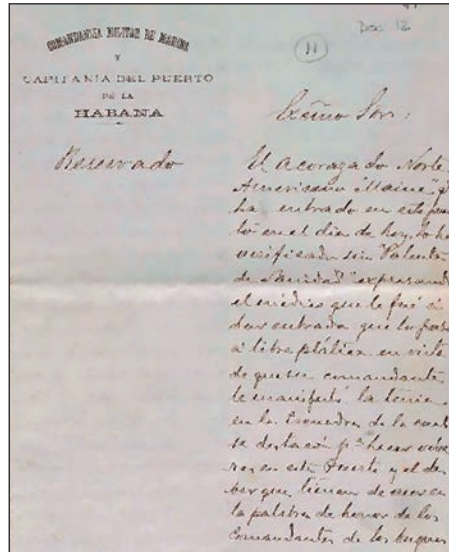 Doc 12
11
COMANDANCIA MILITAR DE MARINA
Y
CAPITANIA DEL PUERTO
DE LA
HABANA
Reservado
Excmo Sor:
El acorazado Norte
Americano "Maine", q
ha entrado en este puer
to en el dia de hoy, lo ha
verificado sin "Patente
de Sanidad" expresando
el médico que le fué á
dar entrada que lo puso
á libre plática en vista
de que su comandante
le manifestó la tenia
en la Escuadra de la cual
se destacó pª hacer víve
res en este Puerto y el de
ber que tienen de creer en
la palabra de honor de los
Comandantes de los buques